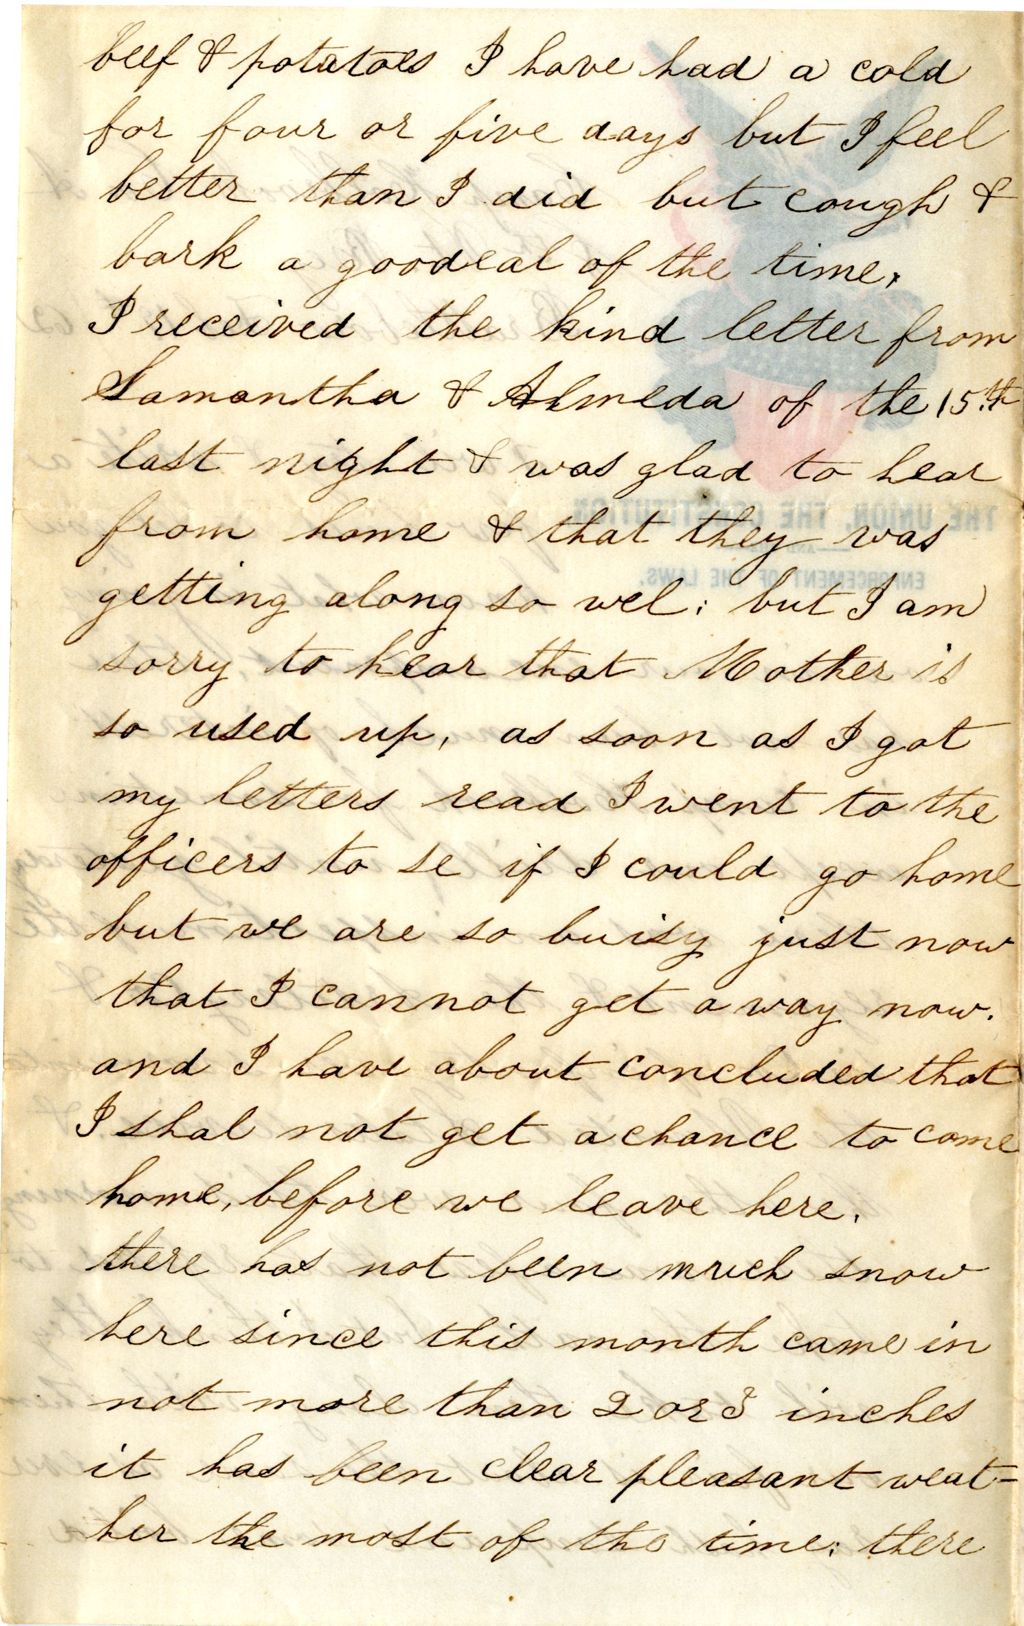 beef & potatoes I have had a cold
for four or five days but I feel
better than I did but cough &
bark a goodeal of the time,
I received the kind letter from
Samantha & Almeda of the 15th
last night & was glad to hear
from home & that they was
getting along so wel; but I am
sorry to hear that Mother is
so used up, as soon as I got
my letters read I went to the
officers to se if I could go home
but we are so buisy just now
that I cannot get away now.
and I have about concluded that
I shal not get a chance to come
home, before we leave here,
there has not been much snow
here since this month came in
not more than 2 or 3 inches
it has been clear pleasant weat=
her the most of the time; there
THE UNION, THE CONSTITUTION
AND
ENFORCEMENT OF THE LAWS.